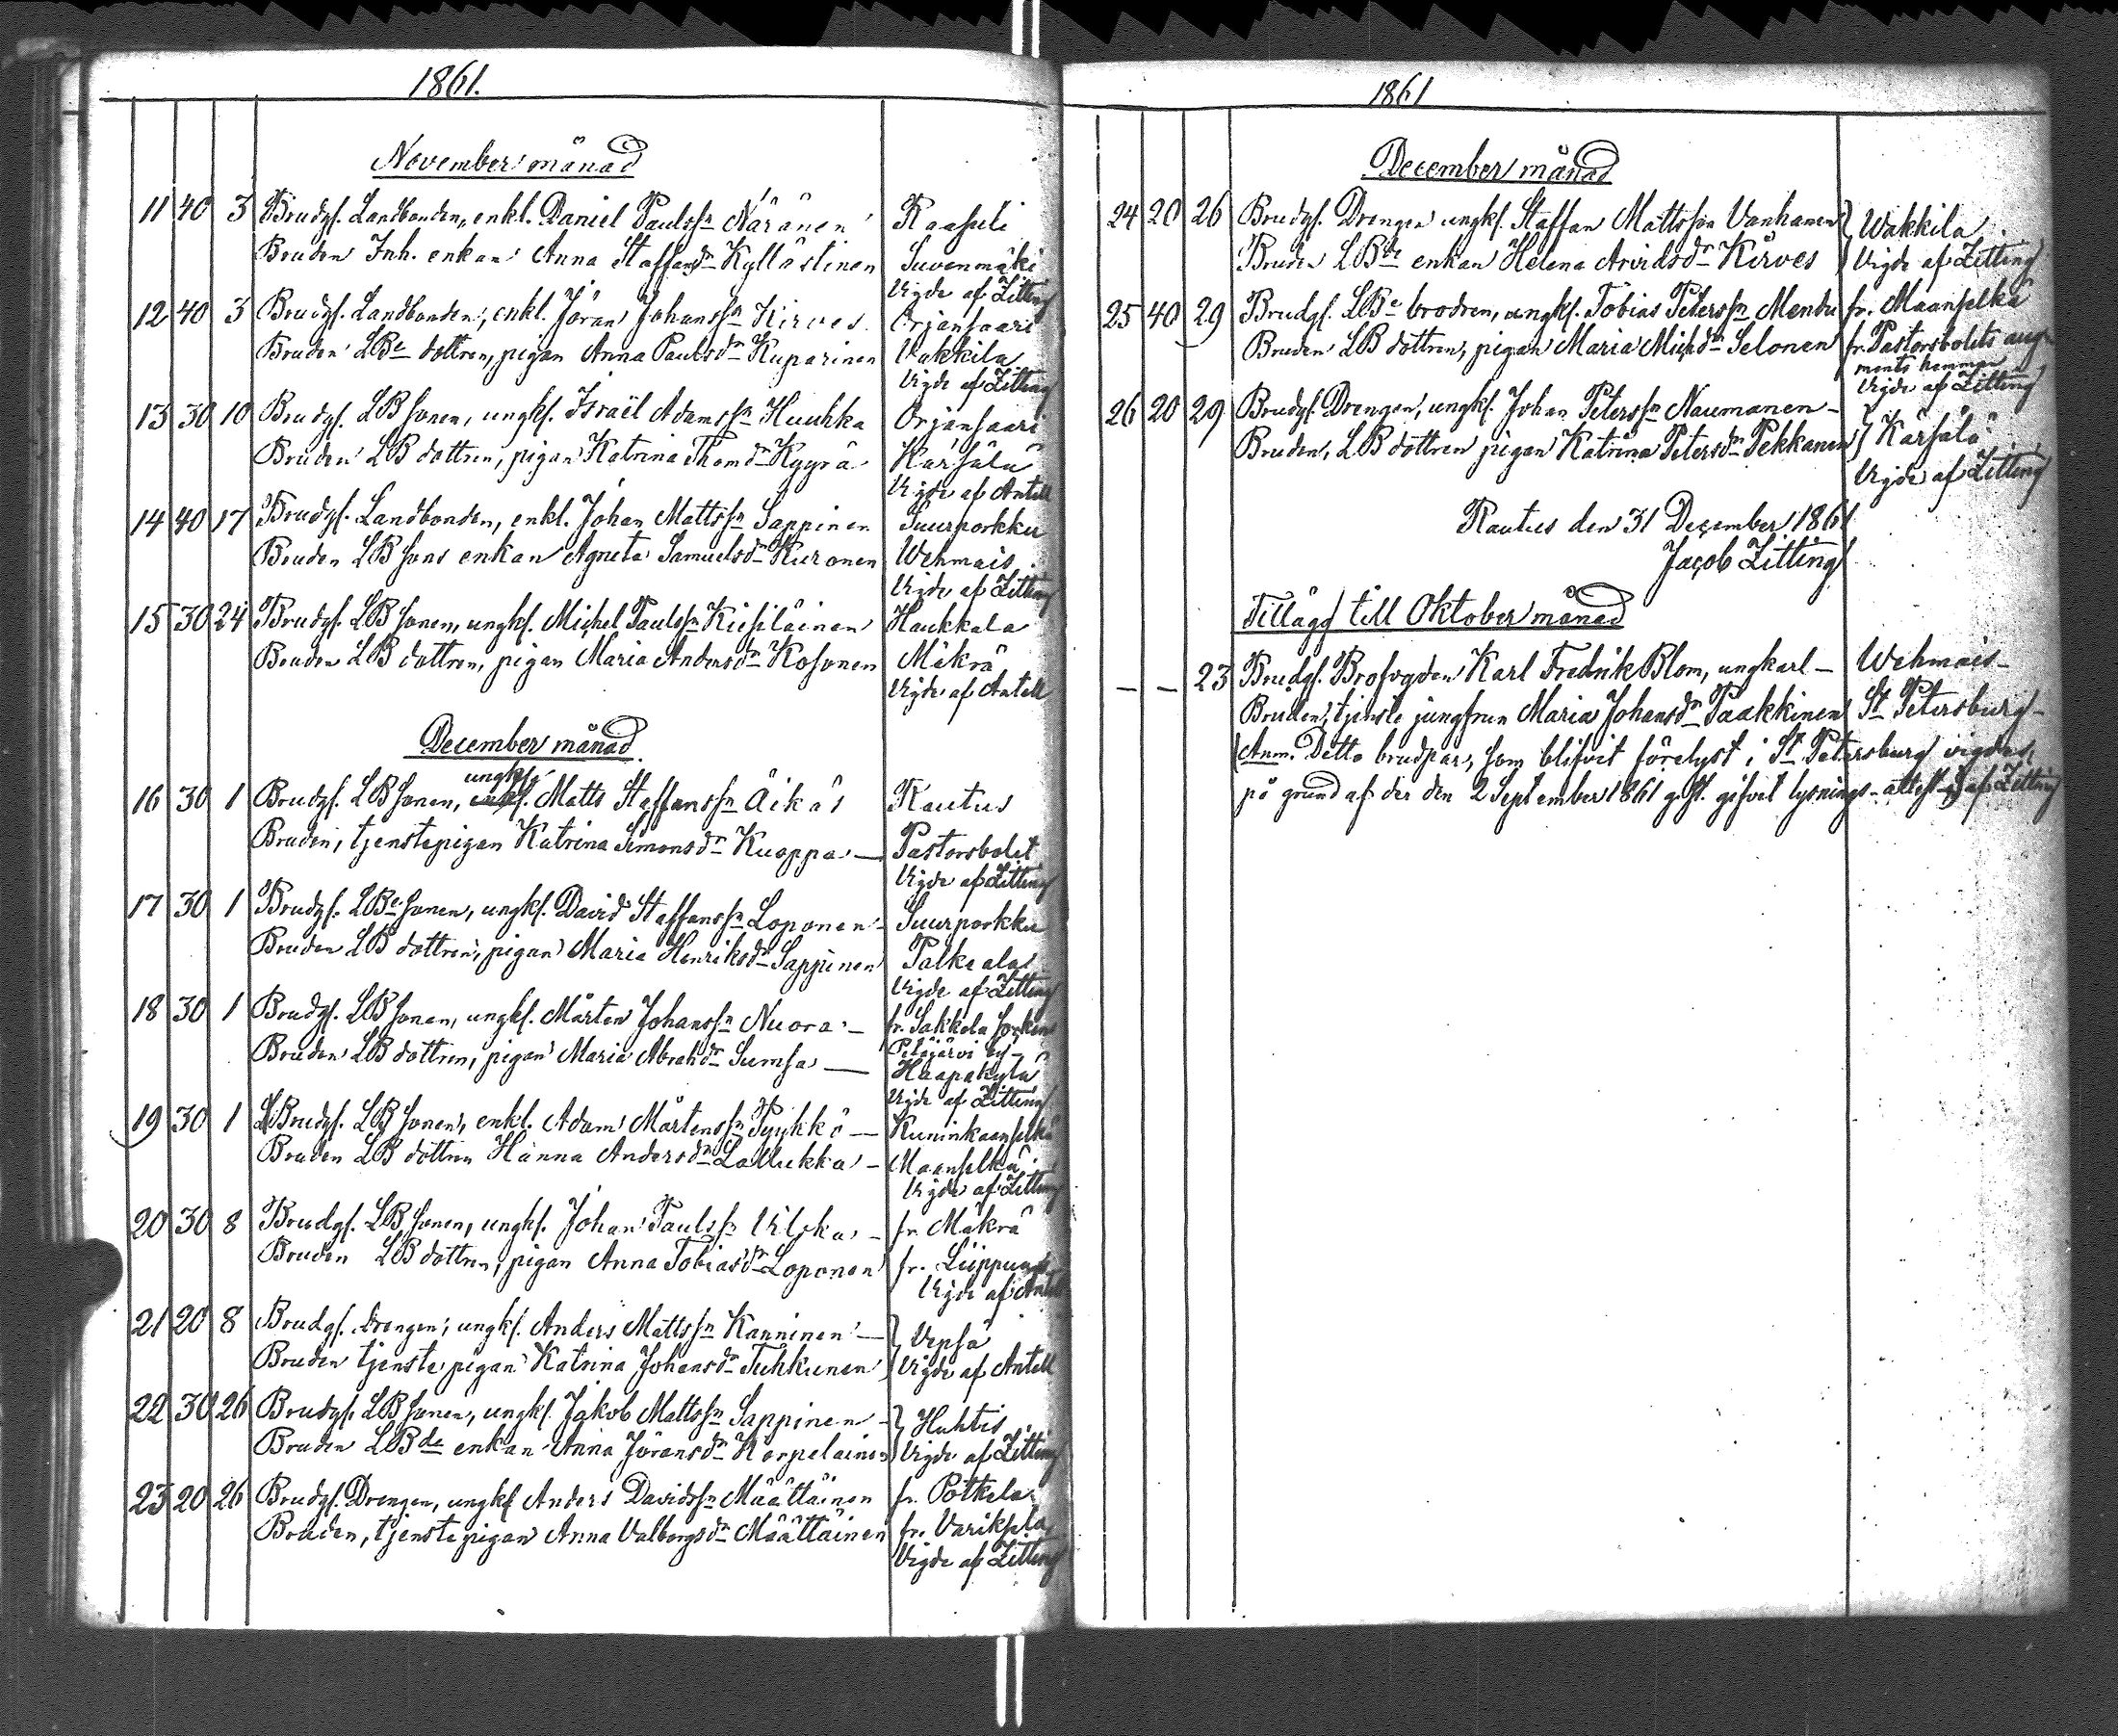 1861.
November månad
11 40 3 Brudg. Landbonden, enkl. Daniel Paulssn Näränen Raasuli
Bruden Inh. enkan Anna Staffansdn Kyllästinen Suvenmäki
Vigde af Zitting
12 40 3 Brudg. Landbonden, enkl. Jöran Johanssn Kirves Orjansaari
Bruden LBe dottren, pigan Anna Paulsdn Kuparinen Vakkila
Vigde af Zitting
13 30 10 Brudg. LB sonen, ungk. Israël Adamssn Huuhka Orjansaari
Bruden LB dottren, pigan Katrina Thomdn Kyyrä Kärsälä
Vigde af Antell
14 40 17 Brudg. Landbonden, enkl. Johan Mattssn Sappinen Suurporkku
Bruden LB sons enkan Agneta Samuelsdn Kuronen Wehmais
Vigde af Zitting
15 30 24 Brudg. LB sonen, ungk. Michel Paulssn Kiesiläinen Haukkala
Bruden LB dottren, pigan Maria Andersdn Kosonen Mäkrä
Vigde af Antell
December månad
ungk.
16 30 1 Brudg. LB sonen, Matts Staffanssn Äikäs Rautus
Bruden, tjenstepigan Katrina Simonsdn Kuoppa — Pastorsbolet
Vigde af Zitting
17 30 1 Brudg. LBe sonen, ungk. David Staffanssn Loponen - Suurporkku
Bruden LB dottren, pigan Maria Henriksdn Sappinen Palkeala
Vigde af Zitting
18 30 1 Brudg. LB sonen, ungk. Mårten Johanssn Nuora - fr. Sakkola socken
Petäjärvi by -
Bruden LB dottren, pigan Maria Abrahdn Sumsa — Haapakylä
Vigde af Zitting
19 30 1 Brudg. LB sonen, enkl. Adam Mårtenssn Pyykkö — Kuninkaanselkä
Bruden LB dottren Hanna Andersdn Lallukka - Maanselkä
Vigde af Zitting
20 30 8 Brudg. LB sonen, ungk. Johan Paulssn Ulska - fr. Mäkrä
Bruden LB dottren, pigan Anna Tobiasdn Loponen fr. Liippua
Vigde af Antell
21 20 8 Brudg. drengen, ungk. Anders Mattssn Kanninen — } Vepsä
Bruden tjenste pigan Katrina Johansdn Tuhkunen } Vigde af Antell
22 30 26 Brudg. LB sonen, ungk. Jakob Mattssn Sappinen - } Huhtis
Bruden LBde enkan Anna Jöransdn Karpelainen } Vigde af Zitting
23 20 26 Brudg. Drengen, ungk Anders Davidssn Määttäinen fr. Pötkelä
Bruden, tjenste pigan Anna Valborgsdn Määttäinen fr. Varikselä
Vigde af Zitting
1861
December månad
24 20 26 Brudg. Drengen ungk. Staffan Mattsson Vanhanen } Wakkila
Bruden LBde enkan Helena Arvidsdn Kirves } Vigde af Zitting
25 40 29 Brudg. LBe brodren, ungk. Tobias Peterssn Mendu fr. Maanselkä
Bruden LB dottren, pigan Maria Michdn Selonen fr. Pastorsbolets aug-
ments hemman
Vigde af Zitting
26 20 29 Brudg. Drengen, ungk. Johan Peterssn Naumanen -
Bruden, LB dottren pigan Katrina Petersdn Pekkanen } Kärsälä
Vigde af Zitting
Rautus den 31 December 1861
Jacob Zitting
Tillägg till Oktober månad
— — 23 Brudg. Brofogden Karl Fredrik Blom, ungkarl - Wehmais -
Bruden, tjenste jungfrun Maria Johansdn Paakkinen St Petersburg -
Anm. Detta brudpar, som blifvit förelyst i St Petersburg vigdes,
på grund af der den 2 September 1861 g. St. gifvet lysnings-attest af Zitting